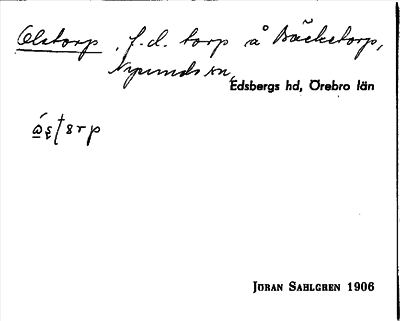 Olstorp, f.d. torp å Bäckstorp,
Nysunds sn,
Edsbergs hd, Örebro län
Jöran Sahlgren 1906